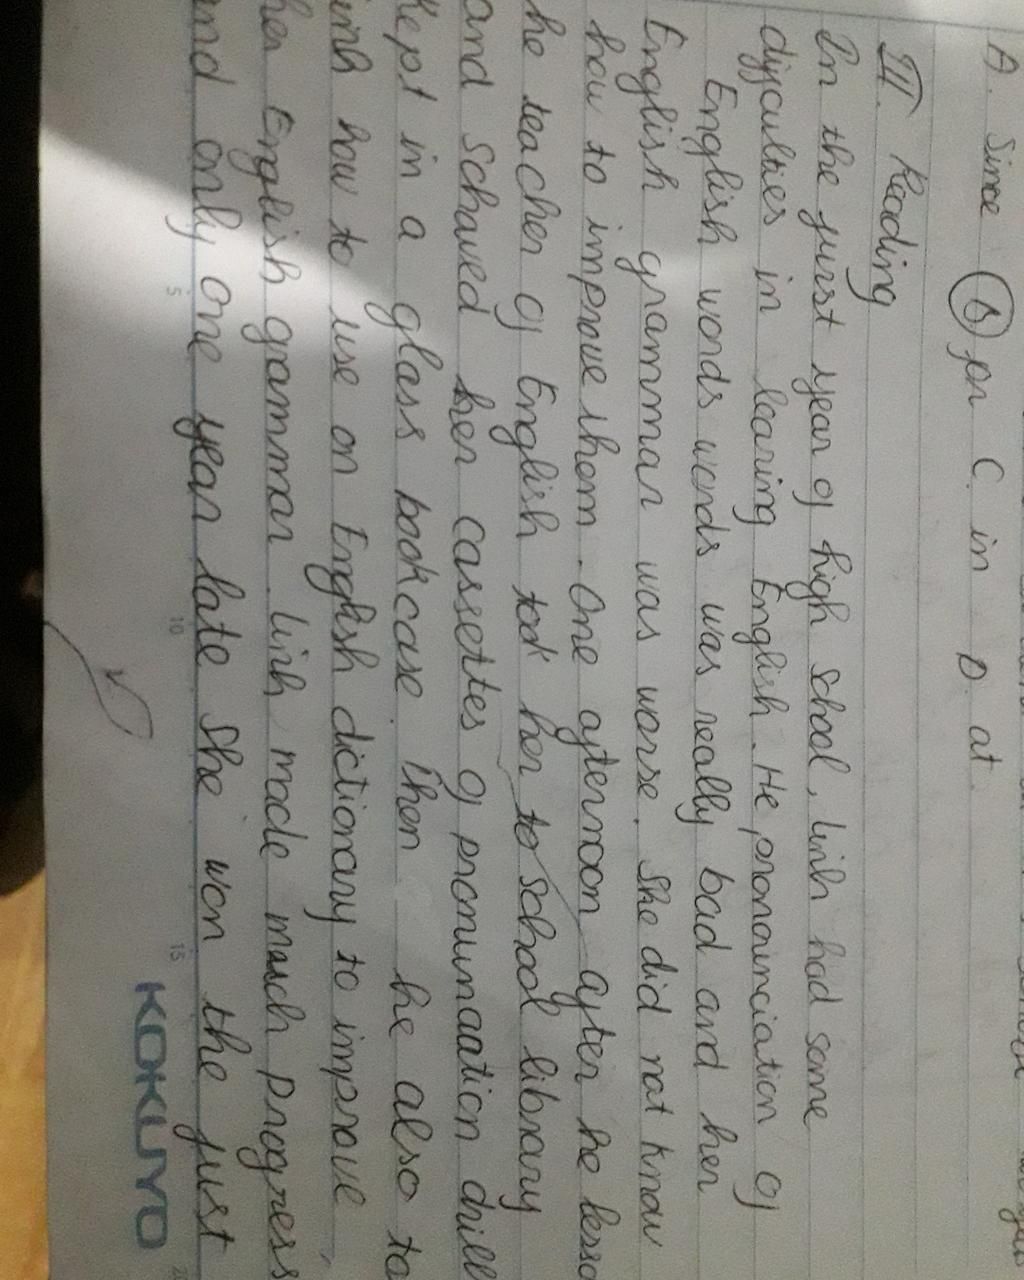 A. Since (B) for C. in D. at.
II. Reading
In the first year of high school, linh had some
difficulties in learing English. He pronounciation of
English words words was really bad and her
English grammar was worse. She did not know
how to improve them. One afternoon after he lesso
he teacher of English took her to school library
and schowed her cassettes of pronunation drill
Kept in a glass bookcase. Then he also to
linh how to use on English dictionary to improve
her English gammar. linh made much progress
and only one year late She won the fust
5
10
15
KOKUYO